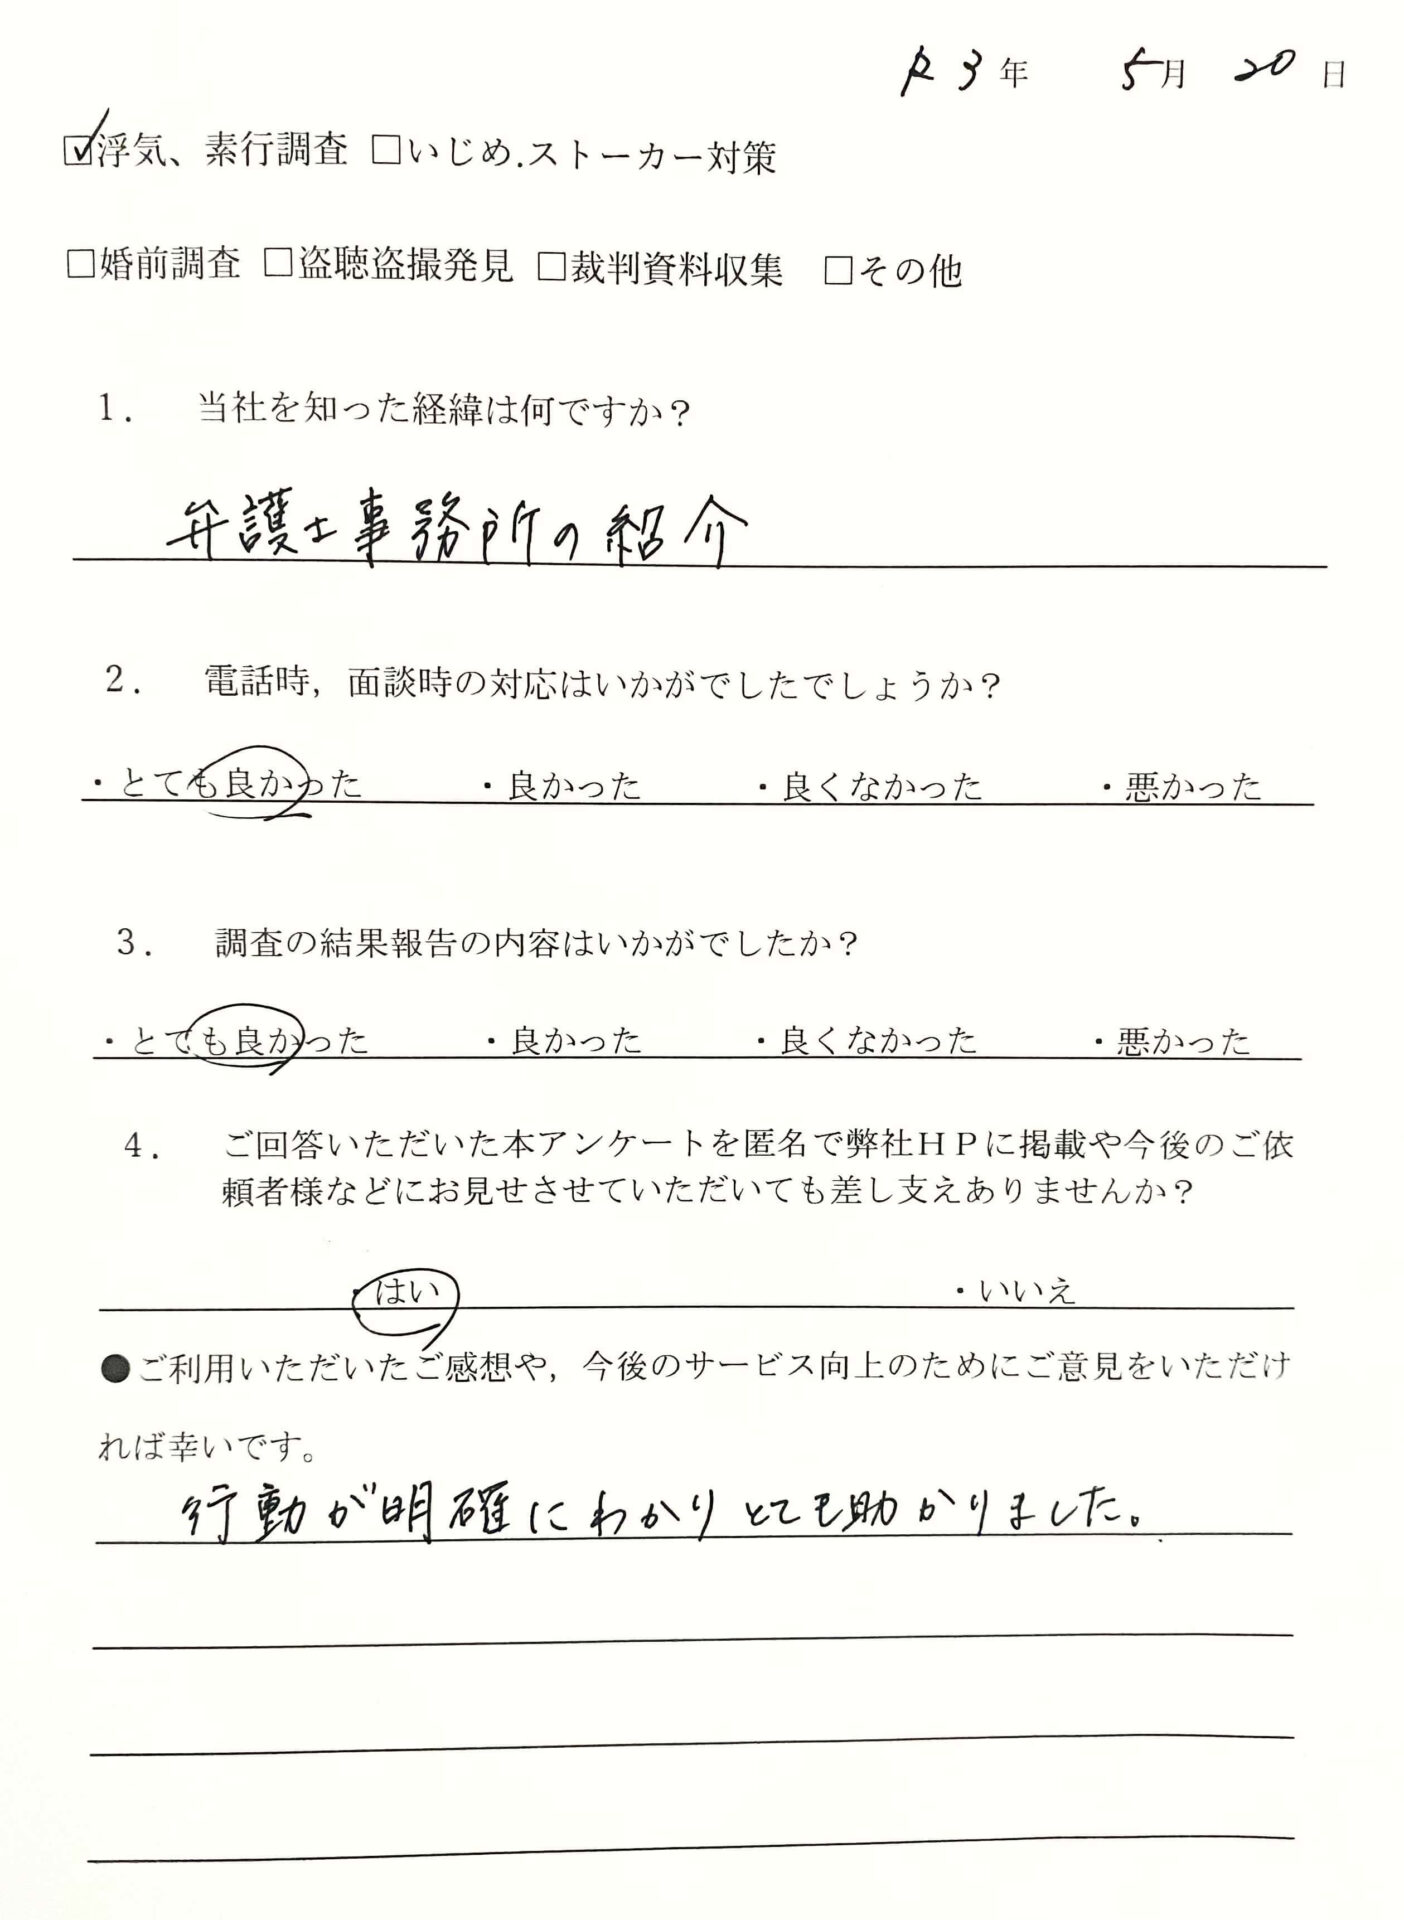 R3年 5月 20日
☑浮気、素行調査 □いじめ.ストーカー対策
□婚前調査 □盗聴盗撮発見 □裁判資料収集 □その他
1. 当社を知った経緯は何ですか？
弁護士事務所の紹介
2. 電話時，面談時の対応はいかがでしたでしょうか？
・とても良かった ・良かった ・良くなかった ・悪かった
3. 調査の結果報告の内容はいかがでしたか？
・とても良かった ・良かった ・良くなかった ・悪かった
4. ご回答いただいた本アンケートを匿名で弊社ＨＰに掲載や今後のご依
頼者様などにお見せさせていただいても差し支えありませんか？
・はい ・いいえ
●ご利用いただいたご感想や，今後のサービス向上のためにご意見をいただけ
れば幸いです。
行動が明確にわかりとても助かりました。